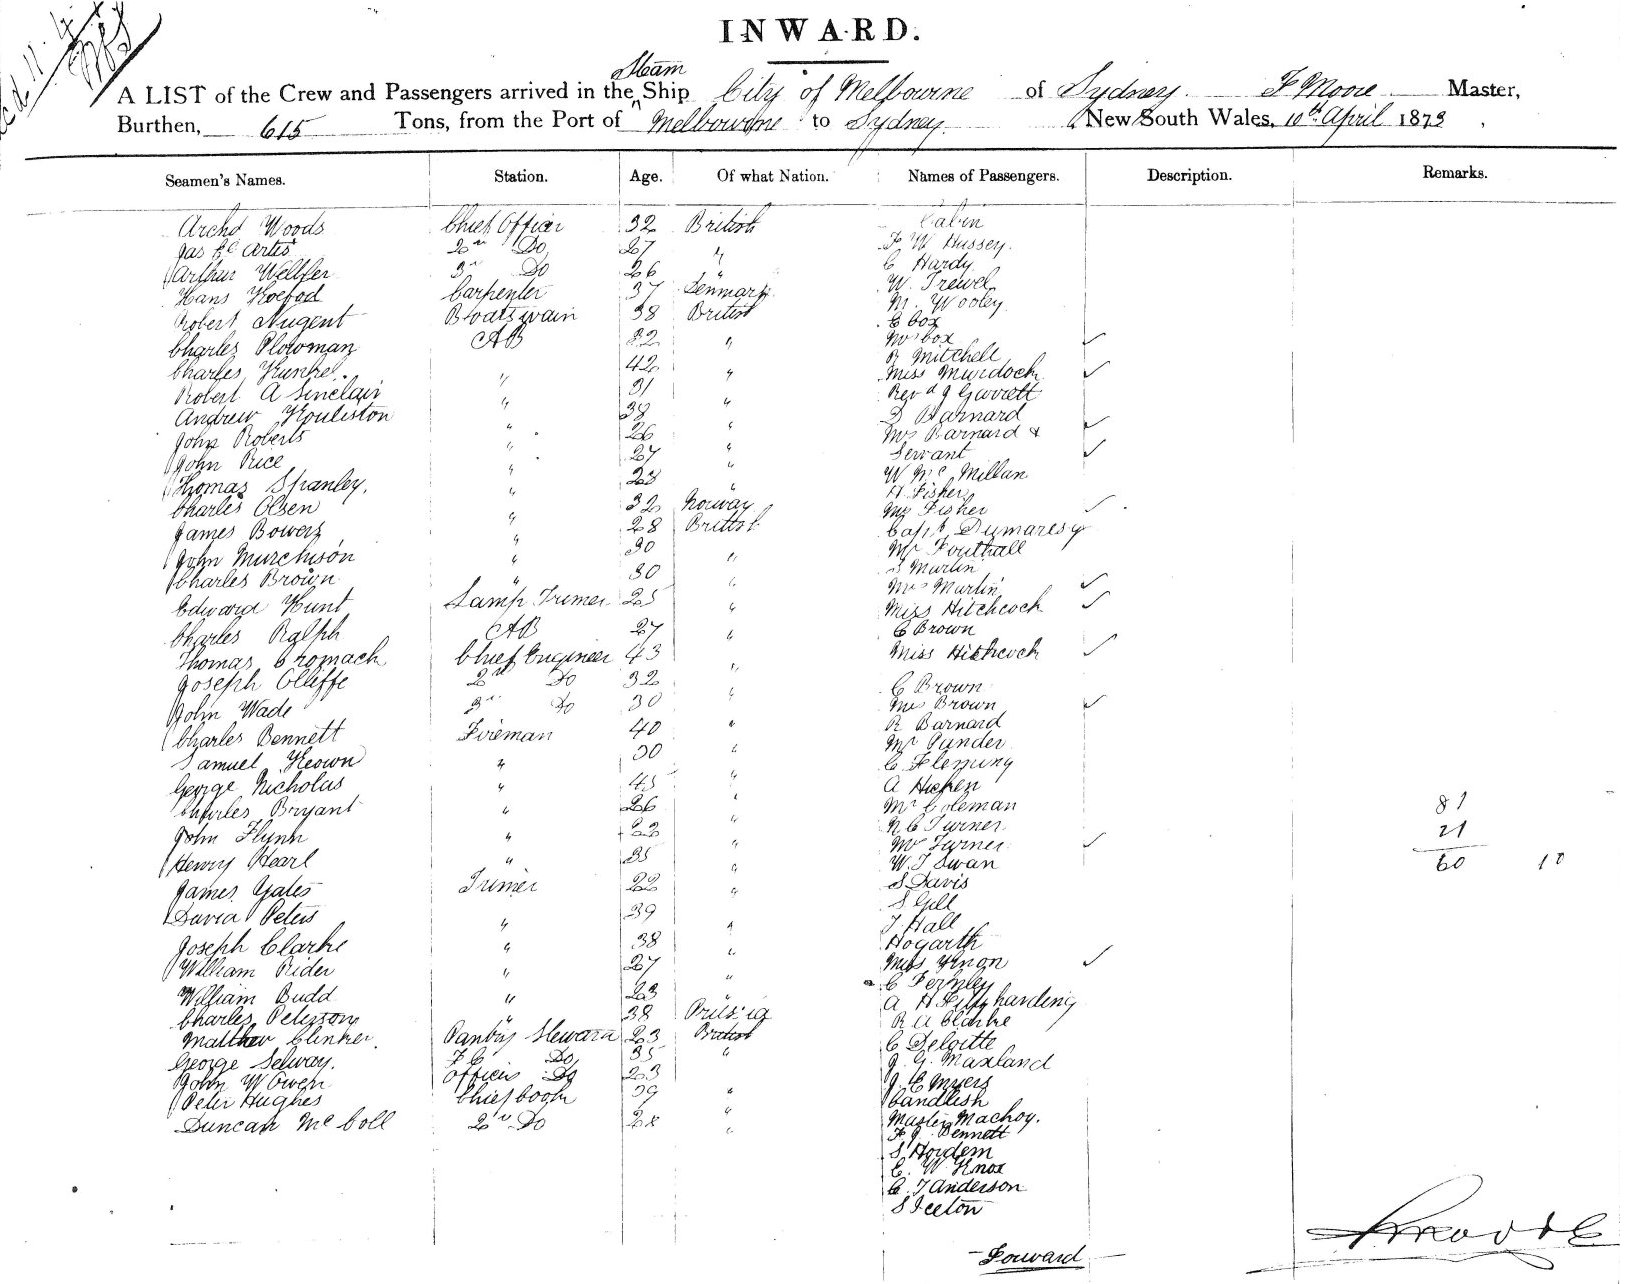 INWARD.
Steam
A LIST of the Crew and Passengers arrived in the " Ship City of Melbourne of Sydney F Moore Master,
Burthen, 615 Tons, from the Port of Melbourne to Sydney New South Wales, 10th April 1873
Seamen's Names. Station. Age. Of what Nation. Names of Passengers. Description. Remarks.
Archd Woods Chief Officer 32 British Cabin
Jas 2nd Do 27 " F W Hussey
Arthur 3rd Do 26 " C Hardy
Hans Koefod Carpenter 37 Denmark W. Trewel
Robert Nugent Boatswain 38 British M. Wooley
C Cox
Charles Plowman AB 32 " Mrs Cox ✓
R Mitchell
Charles Kunke 42 " Miss Murdoch ✓
Robert A Sinclair " 31 Revd J Garrett
Andrew Houliston " 38 " D Barnard
John Roberts " 26 " Mrs Barnard & ✓
John Rice " 27 " Servant ✓
Thomas Spanley " 28 " W Mc Millan
H Fisher
Charles Olsen " 32 Norway Mrs Fisher ✓
James Bowers " 28 British Capt Dumaresq
John Murchison " 30 " Mr Southall
S Martin
Charles Brown " 30 " Mrs Martin ✓
Edward Hunt Lamp Trimer 25 " Miss Hitchcock ✓
Charles Ralph AB 27 " C Brown
Thomas Cromach Chief Engineer 43 " Miss Hitchcock ✓
Joseph Olliffe 2nd Do 32 " C Brown
John Wade 3rd Do 30 " Mrs Brown ✓
Charles Bennett Fireman 40 " R Barnard
Mr Punder
Samuel Keown " 30 " C Fleming
George Nicholas " 45 " A Hicken
Charles Bryant " 26 " Mr Coleman 81
John Flynn " 22 " N C Turner 21
Mrs Turner ✓
Henry Hearl " 35 " W. T Swan 60 10
James Yates Trimer 22 " S Davis
S Gill
David Peters " 39 " T Hall
Joseph Clarke " 38 " Hogarth
William Rider " 27 " Miss Vernon ✓
C Fernley
William Budd " 23 " A H Fitzharding
Charles Peterson " 38 Prussia R A Clarke
Matthew Clinker Pantry Steward 23 British C Deloitte
George Selway F C Do 35 " J. G. Maxland
John W Owen Officers Do 23 J. C Myers
Peter Hughes Chief Cook 39 " Candlish
Duncan Mc Coll 2nd Do 28 " Master Machoy.
" F J Bennett
S Hordern
C. W Knox
C. T Anderson
S Iceton
Forward